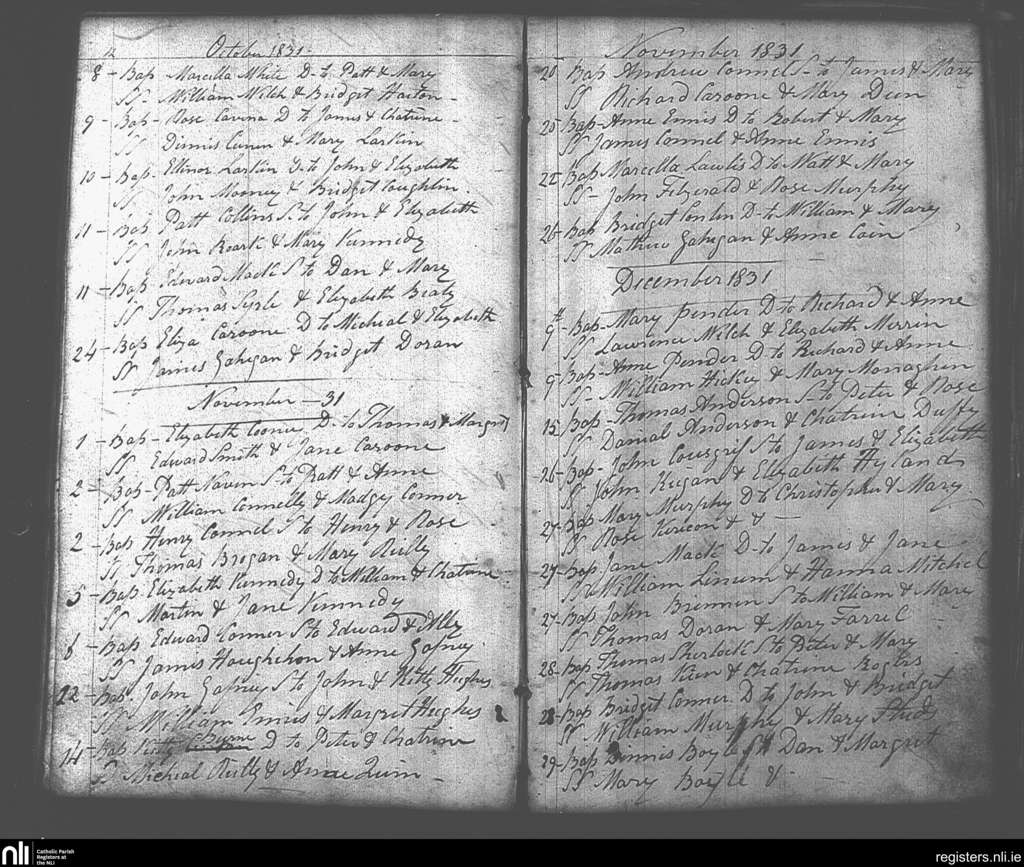 October 1831
8 - Bap Marcella White D- to Patt & Mary
SS - William Welch & Bridget Harton -
9 - Bap - Rose Cavina D to James & Chatrine -
SS Dinnis Curen & Mary Larkin
10 - Bap. Ellinor Larkin D- to John & Elizabeth
SS John Mooney & Bridget Coughlin.
11 - Bap Patt Collins S. to John & Elizabeth
SS John Roark & Mary Kennedy
11 - Bap Edward Mack S to Dan & Mary
SS Thomas & Elizabeth Beaty
24 - Bap Eliza Caroone D to Micheal & Elizabeth
SS James Gahegan & Bridget Doran
November - 31
1 - Bap - Elizabeth D- to Thomas & Margret
SS Edward Smith & Jane Caroone
2 - Bap - Patt Naven S- to Patt & Anne
SS William Connelly & Madgey Connor
2 - Bap Henry Connel S to Henry & Rose
SS Thomas Brogan & Mary Reilly
5 - Bap Elizabeth Kennedy D to William & Chatrine
SS Martin & Jane Kennedy
6 - Bap Edward Conner S to Edward &
SS James & Anne Gafney.
22 - Bap. John Gafney S to John & Kitty Hughes
SS William Ennis & Margret Hughes
14 - Bap Kitty Byrne D to Peter & Chatrine
SS Micheal Reilly & Anne Quin -
November 1831
20 Bap Andrew Connel S- to James & Mary
SS Richard Caroone & Mary Dun
20 - Bap - Anne Ennis D to Robert & Mary
SS James Connel & Anne Ennis
22 Bap Marcella Lawlis D to Matt & Mary
SS - John Fitzerald & Rose Murphy
26 - Bap Bridget Conlin D- to William & Mary
SS Mathew Gahegan & Anne Cain
December 1831
9th - Bap - Mary Pender D- to Richard & Anne
SS Lawrence Welch & Elizabeth Merrin
9 - Bap - Anne Pender D- to Richard & Anne
SS - William Hickey & Mary Monaghen
15 Bap - Thomas Anderson S- to Peter & Rose
SS Danial Anderson & Chatrine Duffy
26 - Bap - John Cousgrif S to James & Elizabeth
SS John Keegan & Elizabeth Hyland
27 - Bap Mary Murphy D to Christopher & Mary
SS Rose & & -
27 - Bap Jane Mack D- to James & Jane
SS William & Hanna Mitchel
27 - Bap John Brennen S to William & Mary
SS Thomas Doran & Mary Farrel
28 - Bap Thomas Sherlock S to Peter & Mary
SS Thomas & Chatrine Rogers
28 - Bap Bridget Conner D to John & Bridget
SS William Murphy & Mary
29 - Bap Dinnis Boyle S to Dan & Margret
SS Mary Boyle & -
nli
Catholic Parish
Registers at
the NLI
registers.nli.ie